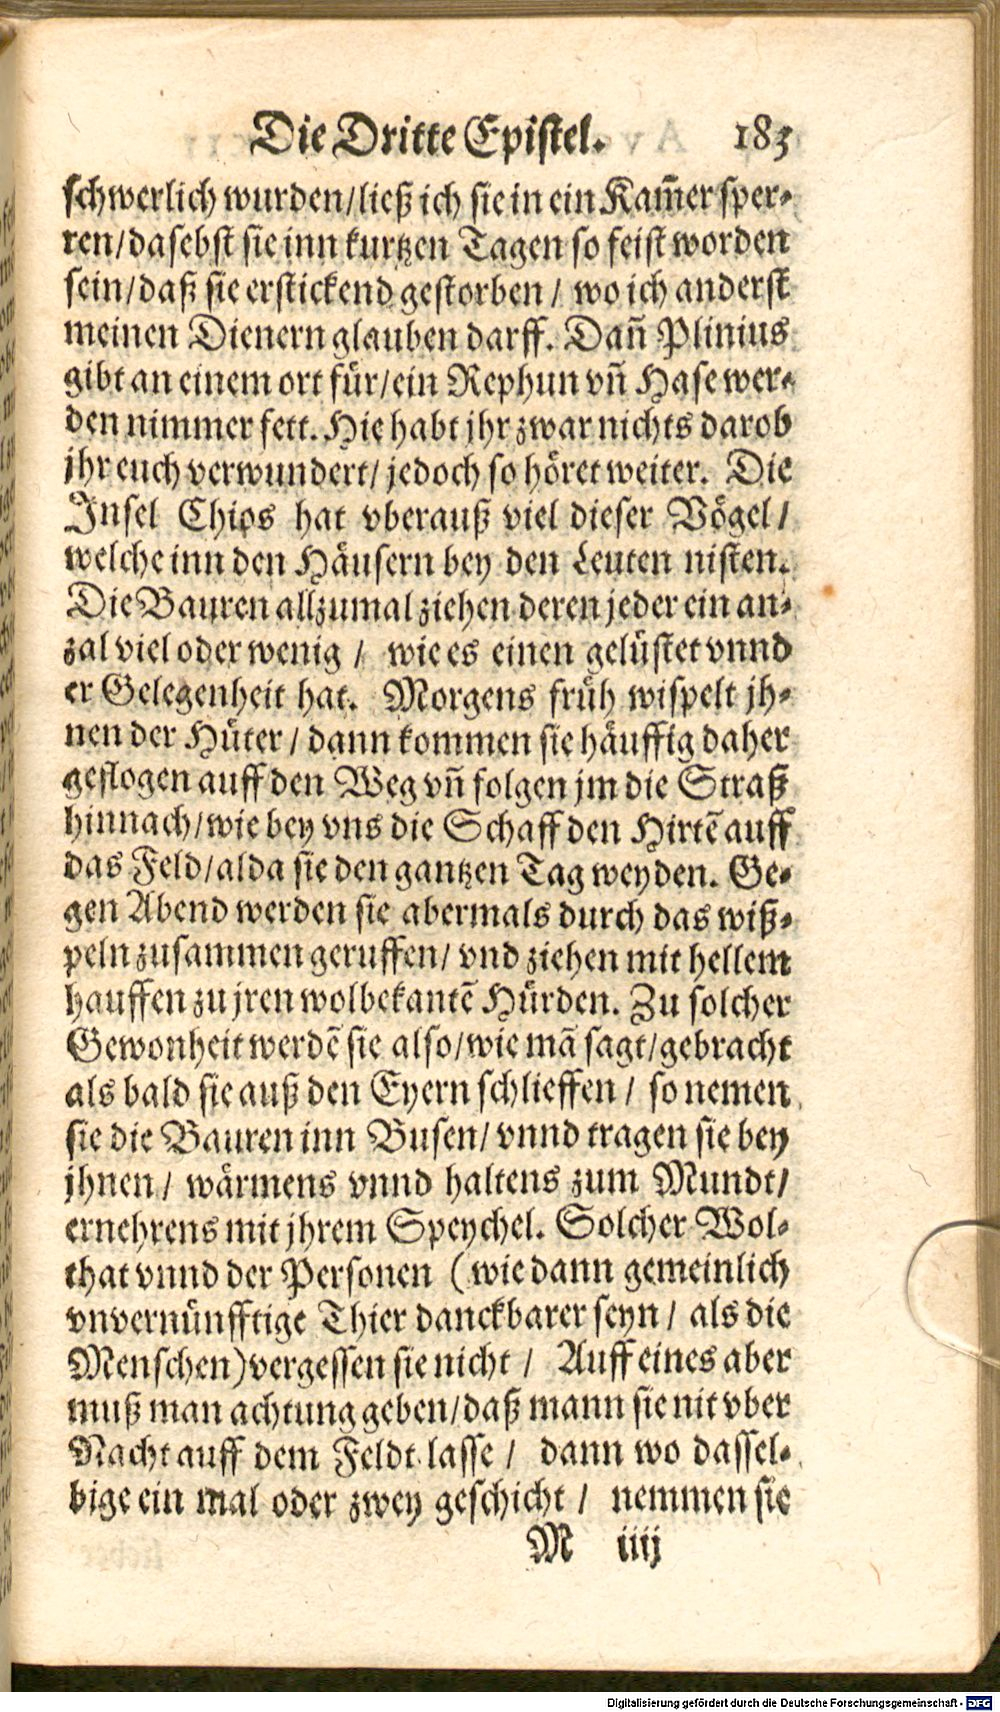 Die Dritte Epistel. 183
schwerlich wurden/ließ ich sie in ein Kam̃er sper-
ren/dasebst sie inn kurtzen Tagen so feist worden
sein/daß sie erstickend gestorben/ wo ich anderst
meinen Dienern glauben darff. Dañ Plinius
gibt an einem ort für/ein Rephun vñ Hase wer-
den nimmer fett. Hie habt jhr zwar nichts darob
jhr euch verwundert/ jedoch so höret weiter. Die
Insel Chios hat vberauß viel dieser Vögel/
welche inn den Häusern bey den Leuten nisten.
Die Bauren allzumal ziehen deren jeder ein an-
zal viel oder wenig / wie es einen gelüstet vnnd
er Gelegenheit hat. Morgens früh wispelt jh-
nen der Hüter / dann kommen sie häuffig daher
geflogen auff den Weg vñ folgen jm die Straß
hinnach/wie bey vns die Schaff den Hirtẽ auff
das Feld/alda sie den gantzen Tag weyden. Ge-
gen Abend werden sie abermals durch das wiß-
peln zusammen geruffen/ vnd ziehen mit hellem
hauffen zu jren wolbekantẽ Hürden. Zu solcher
Gewonheit werdẽ sie also/wie mã sagt/gebracht
als bald sie auß den Eyern schlieffen / so nemen
sie die Bauren inn Busen/ vnnd tragen sie bey
jhnen / wärmens vnnd haltens zum Mundt/
ernehrens mit jhrem Speychel. Solcher Wol-
that vnnd der Personen (wie dann gemeinlich
vnvernünfftige Thier danckbarer seyn / als die
Menschen) vergessen sie nicht / Auff eines aber
muß man achtung geben/daß mann sie nit vber
Nacht auff dem Feldt lasse / dann wo dassel-
bige ein mal oder zwey geschicht / nemmen sie
M iiij
Digitalisierung gefördert durch die Deutsche Forschungsgemeinschaft - DFG